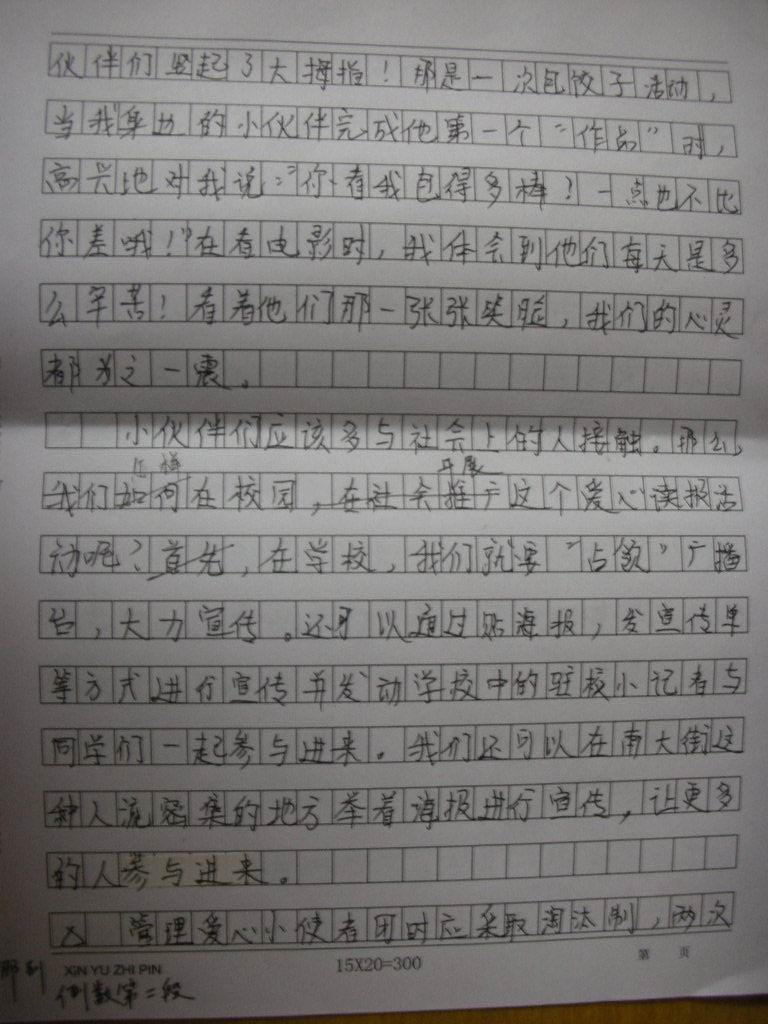 伙伴们竖起了大拇指！那是一次包饺子活动，
当我身边的小伙伴完成他第一个“作品”时，
高兴地对我说：“你看我包得多棒！一点也不比
你差哦！”在看电影时，我体会到他们每天是多
么辛苦！看着他们那一张张笑脸，我们的心灵
都为之一震。
小伙伴们应该多与社会上的人接触。那么，
怎样 开展
我们如何在校园，在社会推广这个爱心读报活
动呢？首先，在学校，我们就要“占领”广播
台，大力宣传。还可以通过贴海报，发宣传单
等方式进行宣传并发动学校中的驻校小记者与
同学们一起参与进来。我们还可以在南大街这
种人流密集的地方举着海报进行宣传，让更多
的人参与进来。
管理爱心小使者团时应采取淘汰制，两次
XIN YU ZHI PIN
15X20=300
第 页
那到
倒数第二段